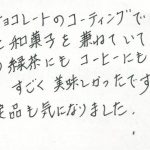 チョコレートのコーティングで
と和菓子を兼ねていて
の緑茶にもコーヒーにも
すごく美味しかったです
定品も気になりました.